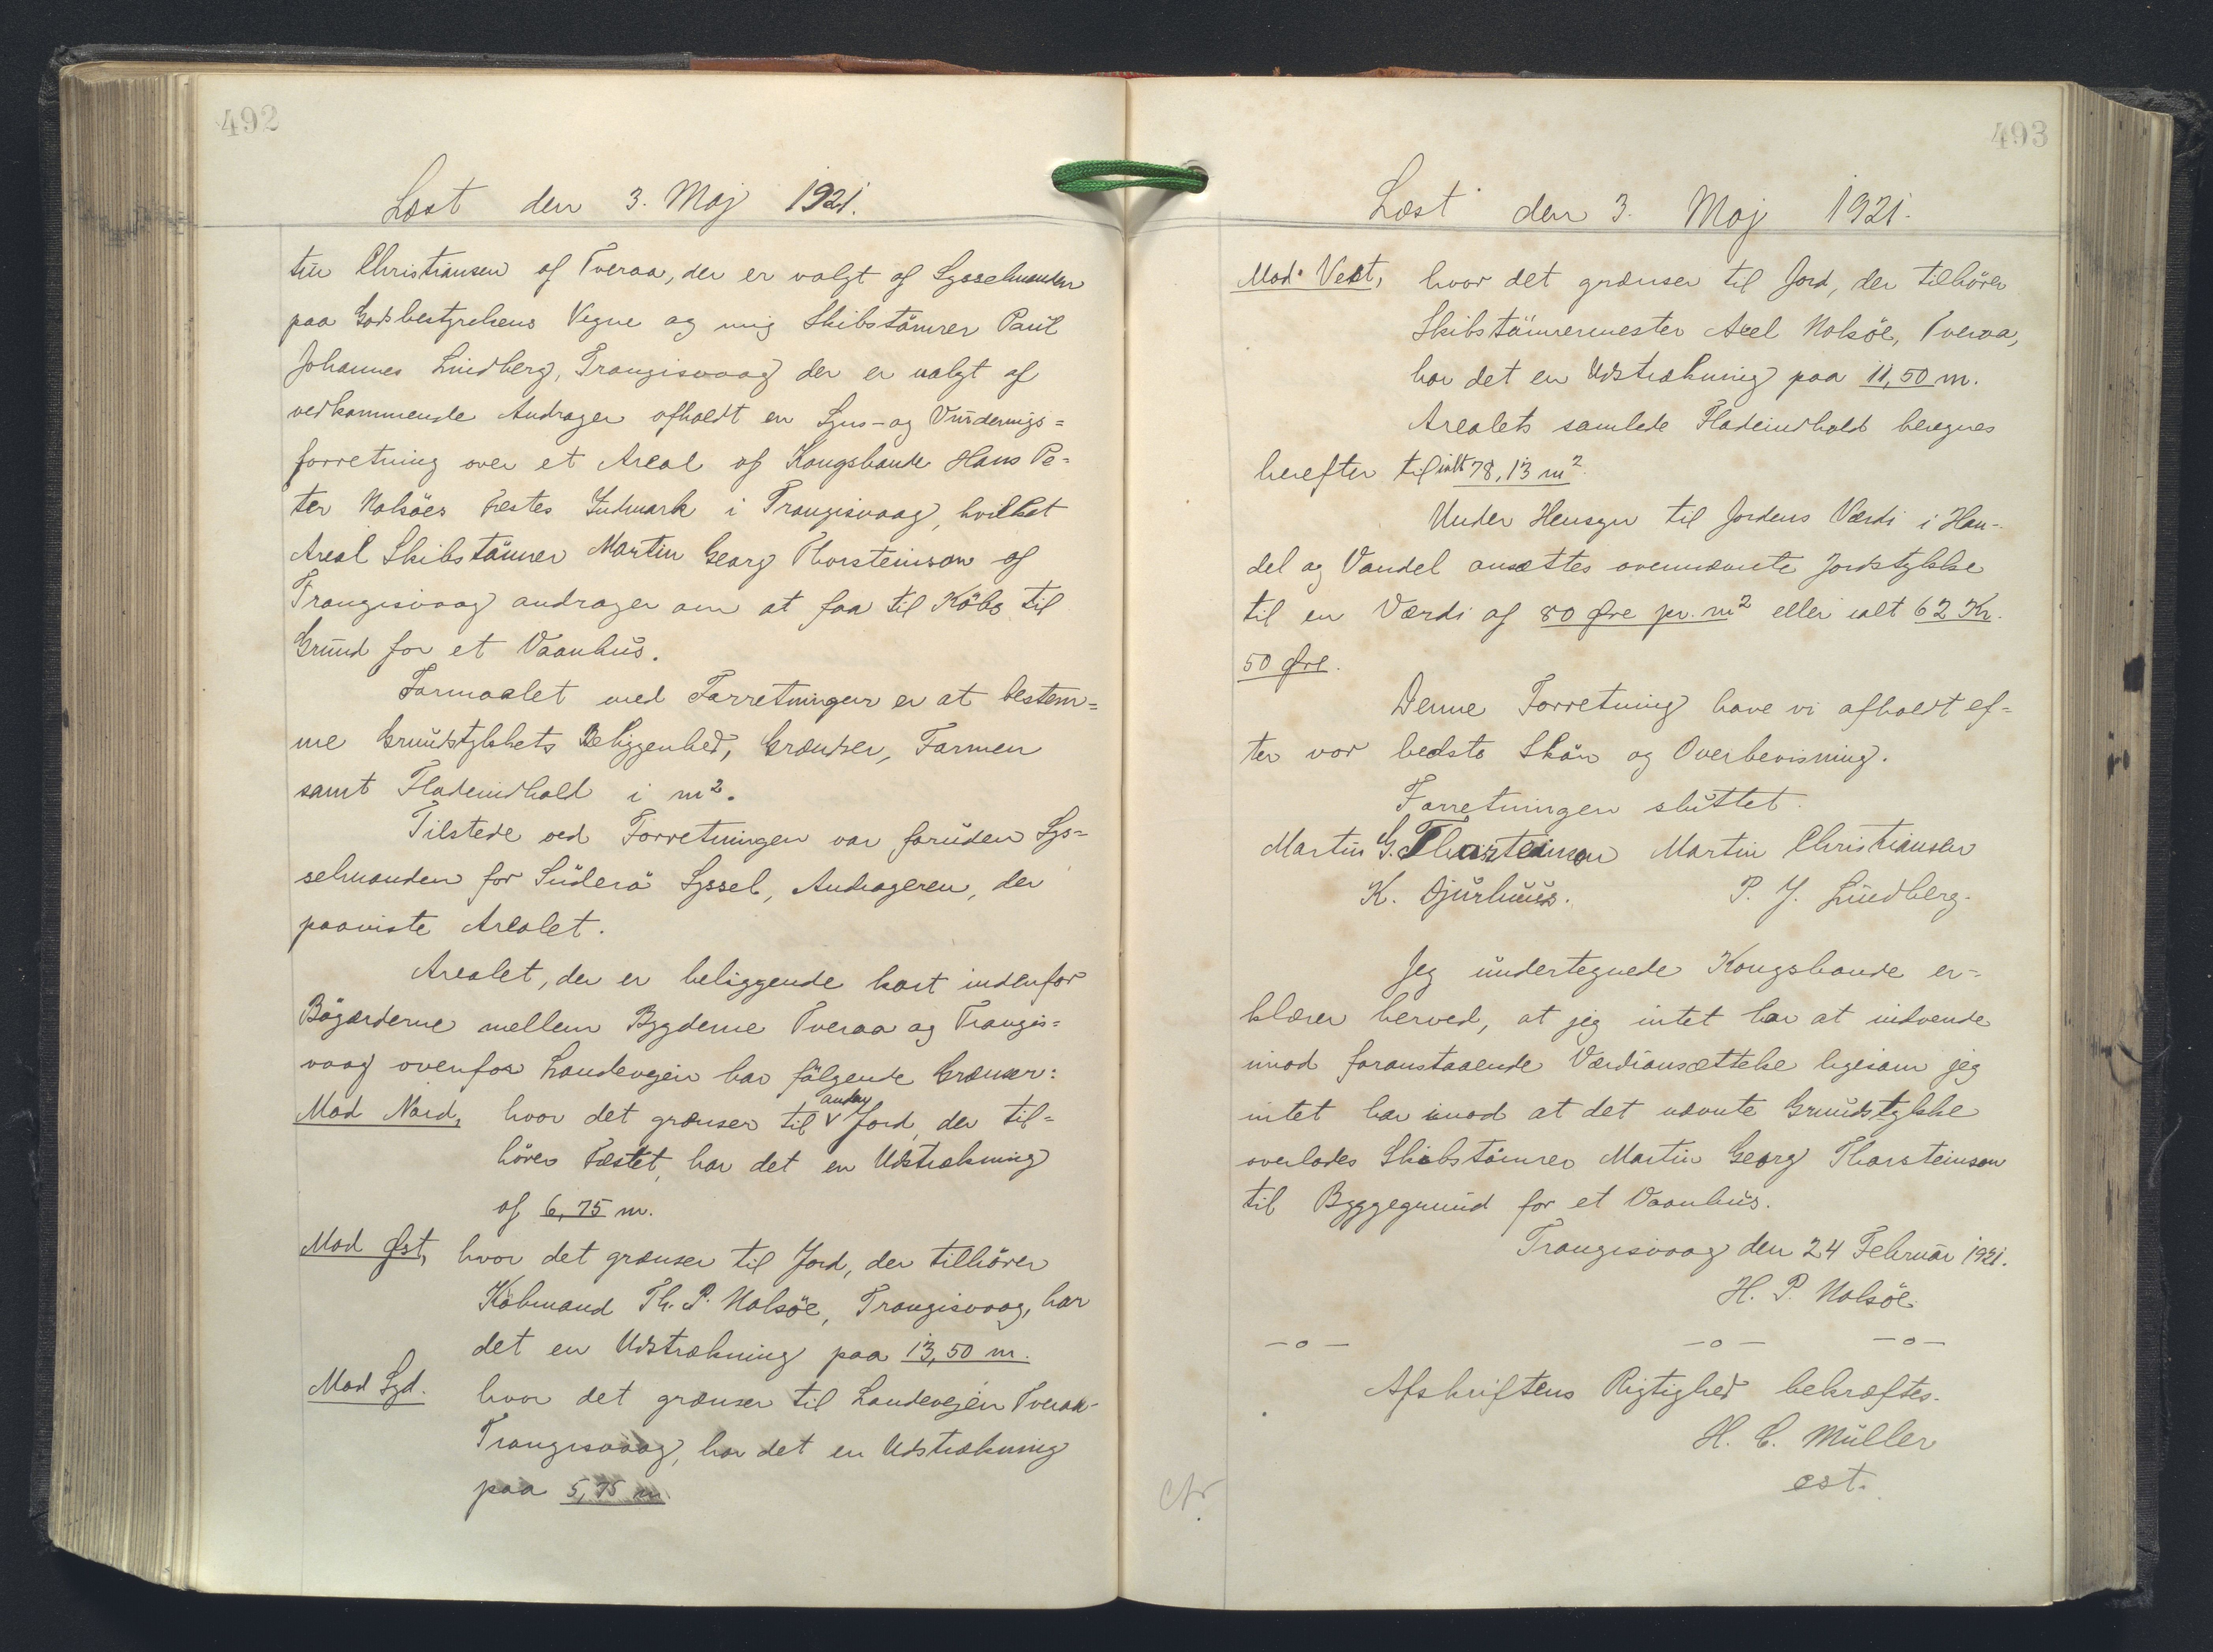 492
Læst den 3. Maj 1921.
tin Christiansen af Tveraa, der er valgt af Sysselmanden
paa Godsbestyrelsens Vegne og mig Skibstömrer Paul
Johannes Lindberg, Trangisvaag der er valgt af
vedkommende Andrager afholdt en Syns- og Vurderings=
forretning over et Areal af Kongsbonde Hans Pe=
ter Nolsöes Fæstes Indmark i Trangisvaag, hvilket
Areal Skibstömrer Martin Georg Thorsteinson af
Trangisvaag andrager om at faa til Köbs til
Grund for et Vaanhus.
Formaalet med Forretningen er at bestem=
me Grundstykkets Beliggenhed, Grændser, Formen
samt Fladeindhold i m².
Tilstede ved Forretningen var foruden Sys=
selmanden for Suderö Syssel, Andrageren, der
paaviste Arealet.
Arealet, der er beliggende kort indenfor
Bögærderne mellem Bygderne Tveraa og Trangis=
vaag ovenfor Landevejen har fölgende Grænser:
Mod Nord, hvor det grænser til anden Jord, der til=
hörer Fæstet, har det en Udstrækning
af 6,75 m.
Mod Øst, hvor det grænser til Jord, der tilhörer
Köbmand Th. P. Nolsöe, Trangisvaag, har
det en Udstrækning paa 13,50 m.
Mod Syd. hvor det grænser til Landevejen Tveraa-
Trangisvaag, har det en Udstrækning
paa 5,75 m.
493
Læst den 3. Maj 1921.
Mod Vest, hvor det grænser til Jord, der tilhörer
Skibstömrermester Axel Nolsöe, Tveraa,
har det en Udstrækning paa 11,50 m.
Arealets samlede Fladeindhold beregnes
herefter til ialt 78,13 m².
Under Hensyn til Jordens Værdi i Han-
del og Vandel ansættes ovennævnte Jordstykke
til en Værdi af 80 Øre pr. m² eller ialt 62 Kr.
50 Øre.
Denne Forretning have vi afholdt ef=
ter vor bedste Skön og Overbevisning.
Forretningen sluttet.
Martin G. Thorsteinson Martin Christiansen
K. Djurhuus. P. J. Lindberg.
Jeg undertegnede Kongsbonde er=
klærer herved, at jeg intet har at indvende
imod foranstaaende Værdiansættelse ligesom jeg
intet har imod at det nævnte Grundstykke
overlades Skibstömrer Martin Georg Thorsteinson
til Byggegrund for et Vaanhus.
Trangisvaag den 24 Februar 1921.
H. P. Nolsöe.
-o- -o- -o-
Afskriftens Rigtighed bekræftes.
H. C. Müller
est.